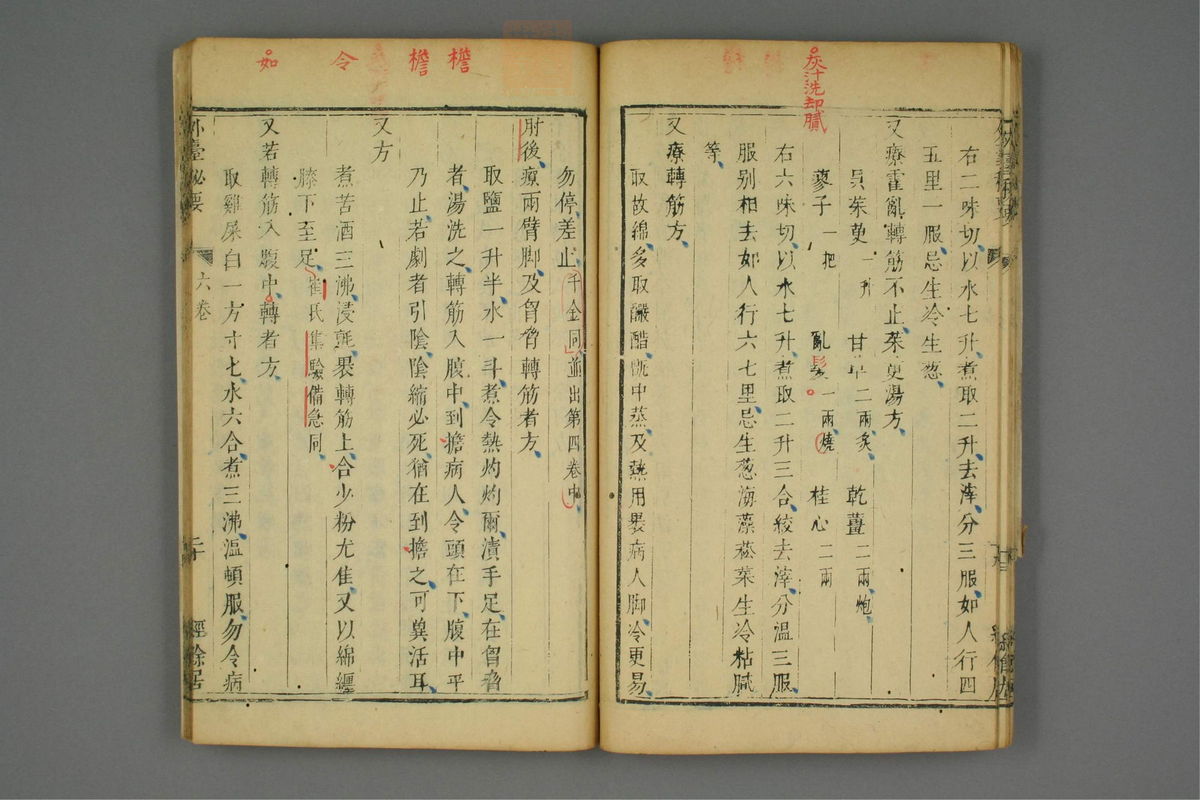 炭汁洗却膩
右二味切以水七升煮取二升去滓分三服如人行四
五里一服忌生冷生葱
又療霍亂轉筋不止茱萸湯方
吳茱萸一升 甘草二兩炙 乾薑二兩炮
蓼子一把 亂髮一兩燒 桂心二兩
右六味切以水七升煮取二升三合絞去滓分溫三服
服别相去如人行六七里忌生葱海藻菘菜生冷粘膩
等
又療轉筋方
取故綿多取釅醋甑中蒸及熱用裹病人脚冷更易
檐
檐
令
如
勿停差止千金同並出第四卷中
肘後療兩臂脚及胷脅轉筋者方
取鹽一升半水一斗煮令熱灼灼爾漬手足在胷脅
者湯洗之轉筋入腹中到擔病人令頭在下腹中平
乃止若劇者引陰陰縮必死猶在到擔之可兾活耳
又方
煮苦酒三沸浸氊裹轉筋上合少粉尤佳又以綿纒
膝下至足崔氏集驗備急同
又若轉筋入腹中轉者方
取雞屎白一方寸匕水六合煮三沸溫頓服勿令病
外臺秘要 六卷 二十 經餘居